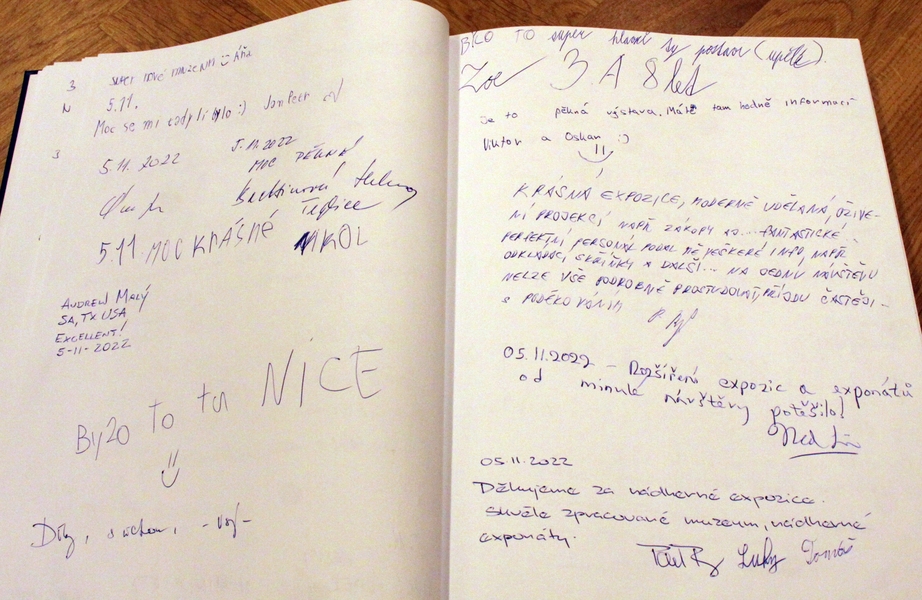 3 super nové muzeum :) Áňa
N 5.11.
Moc se mi tady líbylo :) Jan Petr
3
5.11.2022
5.11.2022
MOC PĚKNÉ
Teplice
5.11 MOC KRÁSNÉ NIKOL
ANDREW MALÝ
SA, TX USA
EXCELLENT!
5-11-2022
BYLO to tu NICE
Díky,
BYLO TO super hlavně ty postavy (upíř)
Zoe 3.A 8 let
Je to pěkná výstava. Máte tam hodně informací
Viktor a Oskar :)
KRÁSNÁ EXPOZICE, MODERNĚ UDĚLANÁ, OŽIVE-
NÍ PROJEKCÍ, NAPŘ. ZÁKOPY ... FANTASTICKÉ -
PERFEKTNÍ PERSONÁL PODAL MĚ VEŠKERÉ INFO, NAPŘ.
ODKLÁDACÍ SKŘÍŇKY A DALŠÍ... NA JEDNU NÁVŠTĚVU
NELZE VŠE PODROBNĚ PROSTUDOVAT, PŘIJDU ČASTĚJI -
S PODĚKOVÁNÍM
05.11.2022 - Rozšíření expozic a exponátů
od minulé návštěvy potěšilo!
05.11.2022
Děkujeme za nádherné expozice.
Skvěle zpracované muzeum, nádherné
exponáty.
Luky Tomáš